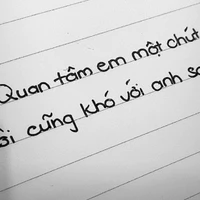 Quan tâm em một chút
cũng khó với anh